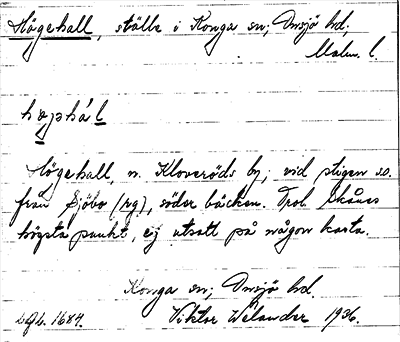 Högehall, ställe i Konga sn; Onsjö hd,
Malm. l.
högehál
Högehall, n. Kloveröds by; vid stigen so.
från Sjöbo (rg), söder bäcken. Trol. Skånes
högsta punkt, ej utsatt på någon karta.
Konga sn; Onsjö hd.
Viktor Welander 1936.
1684.